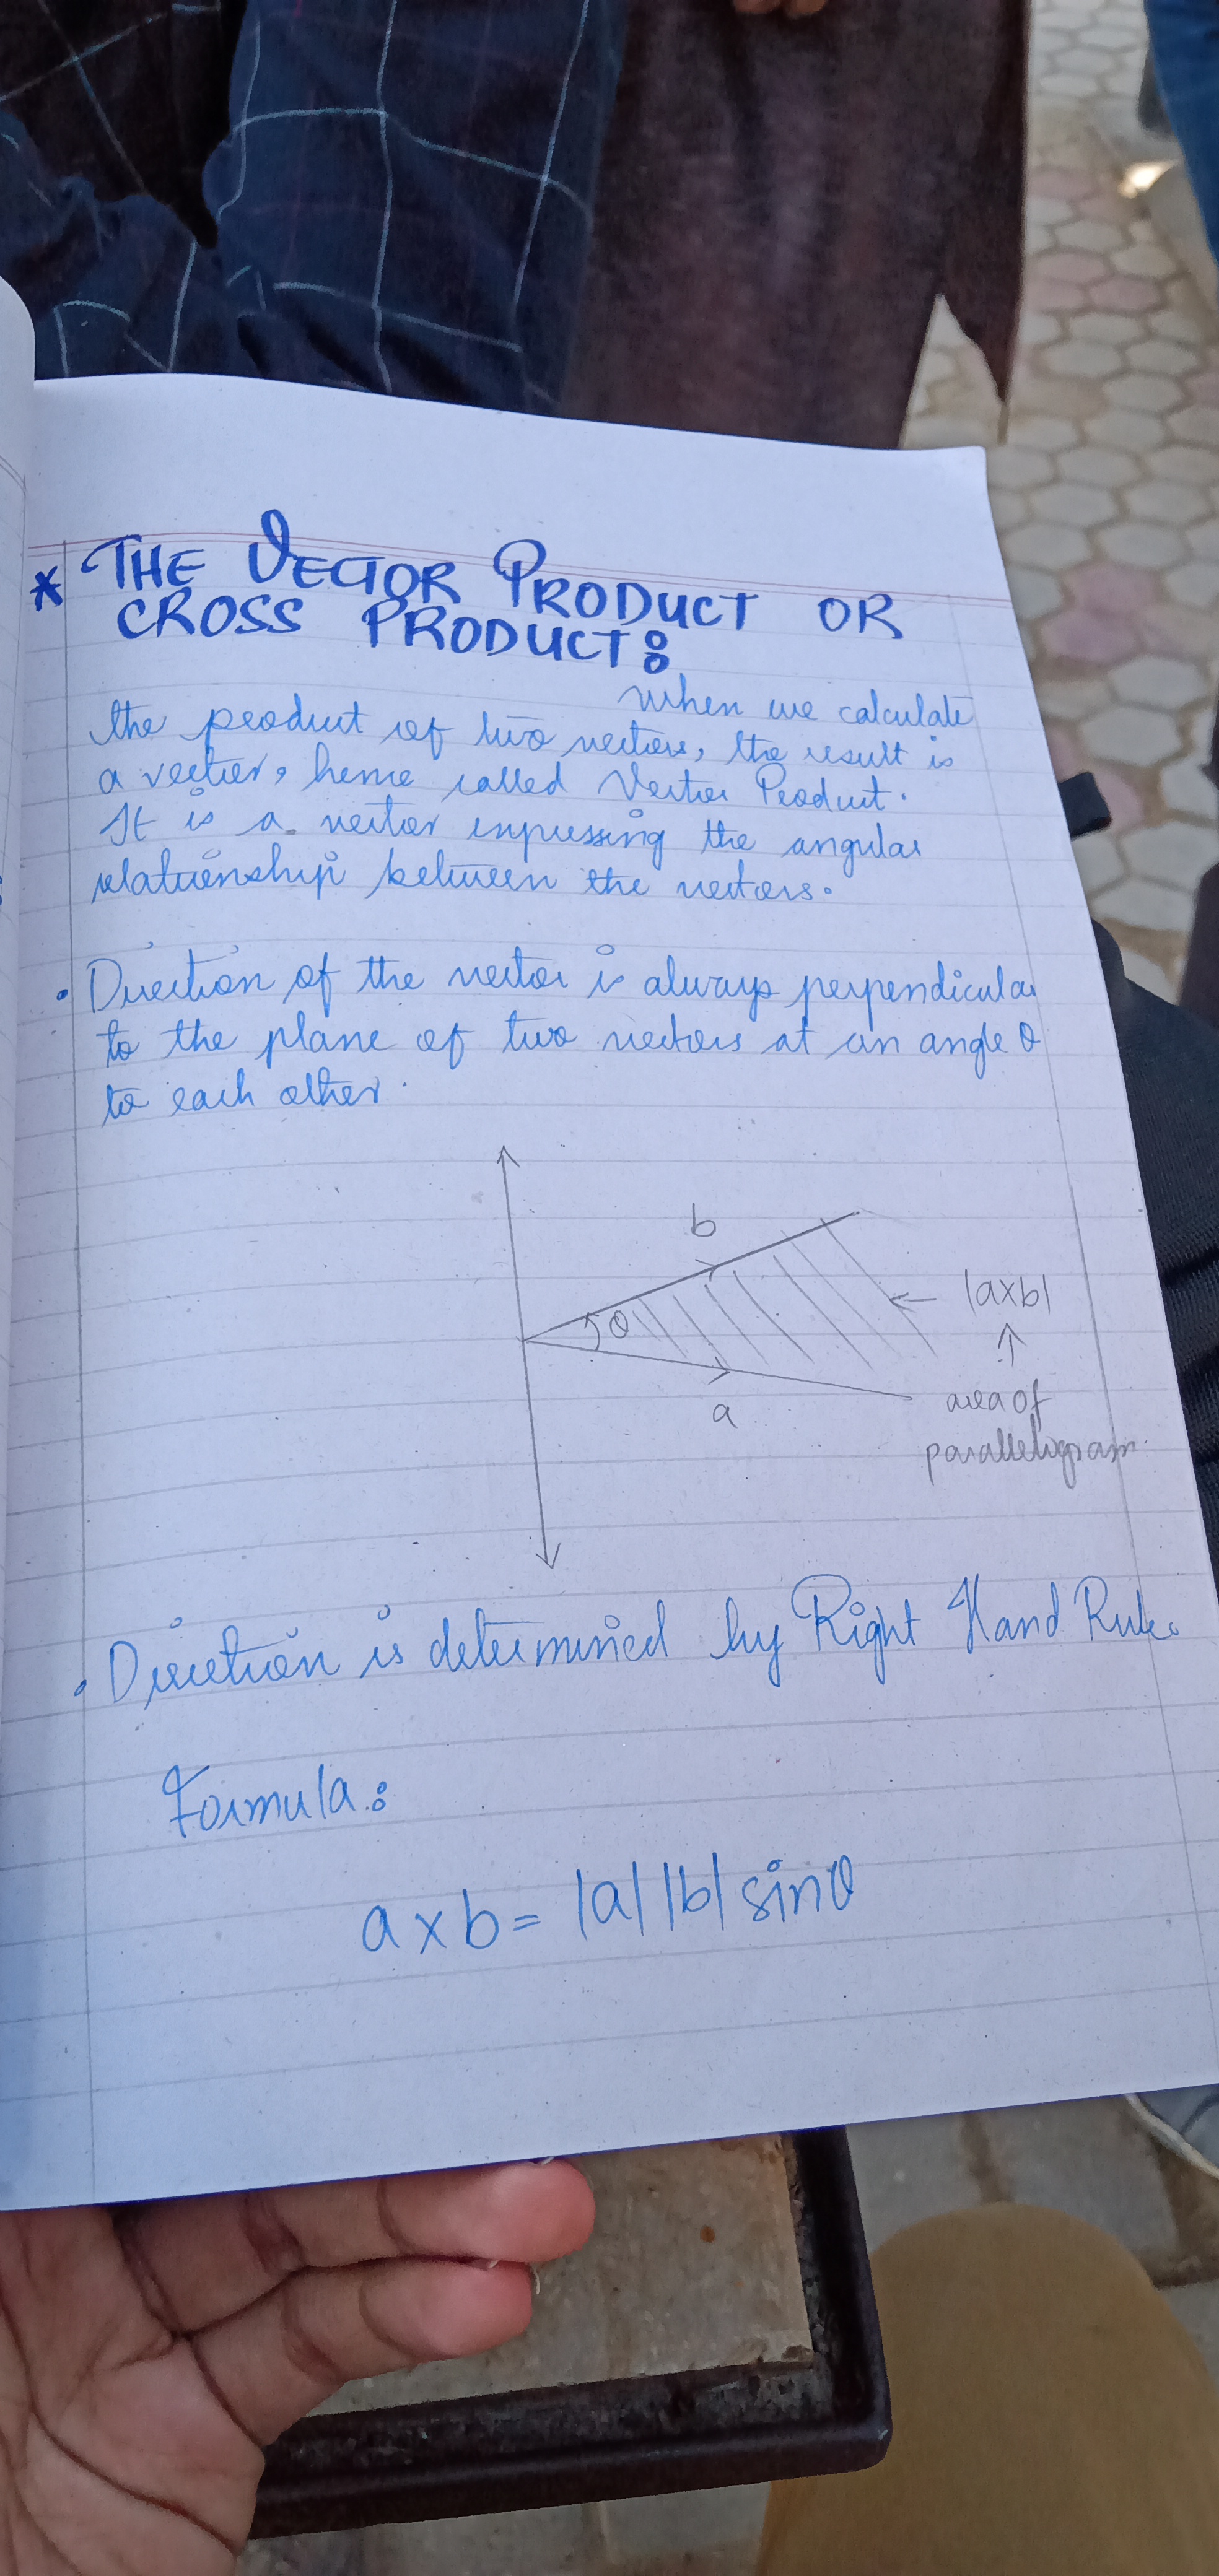 * THE VECTOR PRODUCT OR
CROSS PRODUCT:
When we calculate
the product of two vectors, the result is
a vector, hence called Vector Product.
It is a vector expressing the angular
relationship between the vectors.
• Direction of the vector is always perpendicular
to the plane of two vectors at an angle θ
to each other.
b
θ
|a×b|
a
area of
parallelogram
• Direction is determined by Right Hand Rule.
Formula:
a × b = |a| |b| sinθ